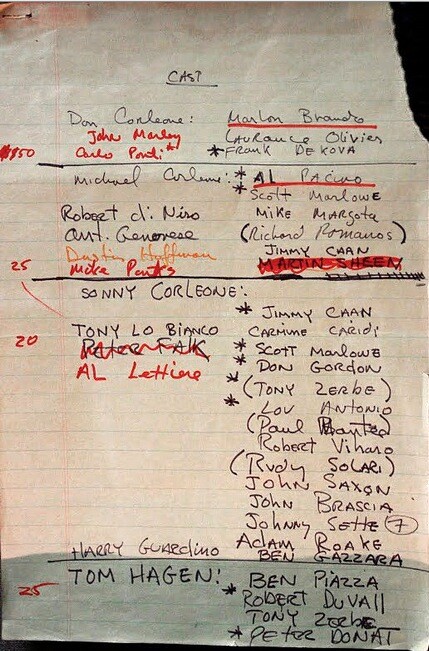 CAST
Don Corleone: Marlon Brando
John Marley Laurance Olivier
$150 Carlo Ponti* * FRANK DE KOVA
Michael Corleone: * AL PACINO
* Scott Marlowe
Robert di Niro MIKE MARGOTA
Ant. Genovese (Richard Romanos)
Dustin Hoffman JIMMY CAAN
25 Mike Parks MARTIN SHEEN
SONNY CORLEONE:
* JIMMY CAAN
TONY LO BIANCO CARMINE CARIDI
20 Peter FALK * SCOTT MARLOWE
AL Lettiere * DON GORDON
* (TONY ZERBE)
* LOU ANTONIO
(Paul)
Robert Viharo
(Rudy SOLARI)
JOHN SAXON
JOHN BRASCIA
Johnny SETTE 7
Adam ROAKE
HARRY GUARDINO BEN GAZZARA
TOM HAGEN: BEN PIAZZA
25 * ROBERT DUVALL
TONY ZERBE
* PETER DONAT